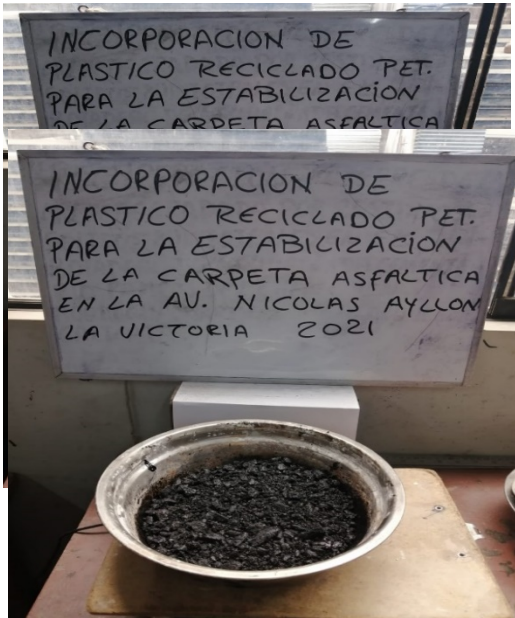 INCORPORACION DE
PLASTICO RECICLADO PET.
PARA LA ESTABILIZACIÓN
DE LA CARPETA ASFALTICA
INCORPORACION DE
PLASTICO RECICLADO PET.
PARA LA ESTABILIZACIÓN
DE LA CARPETA ASFALTICA
EN LA AV. NICOLAS AYLLON
LA VICTORIA 2021